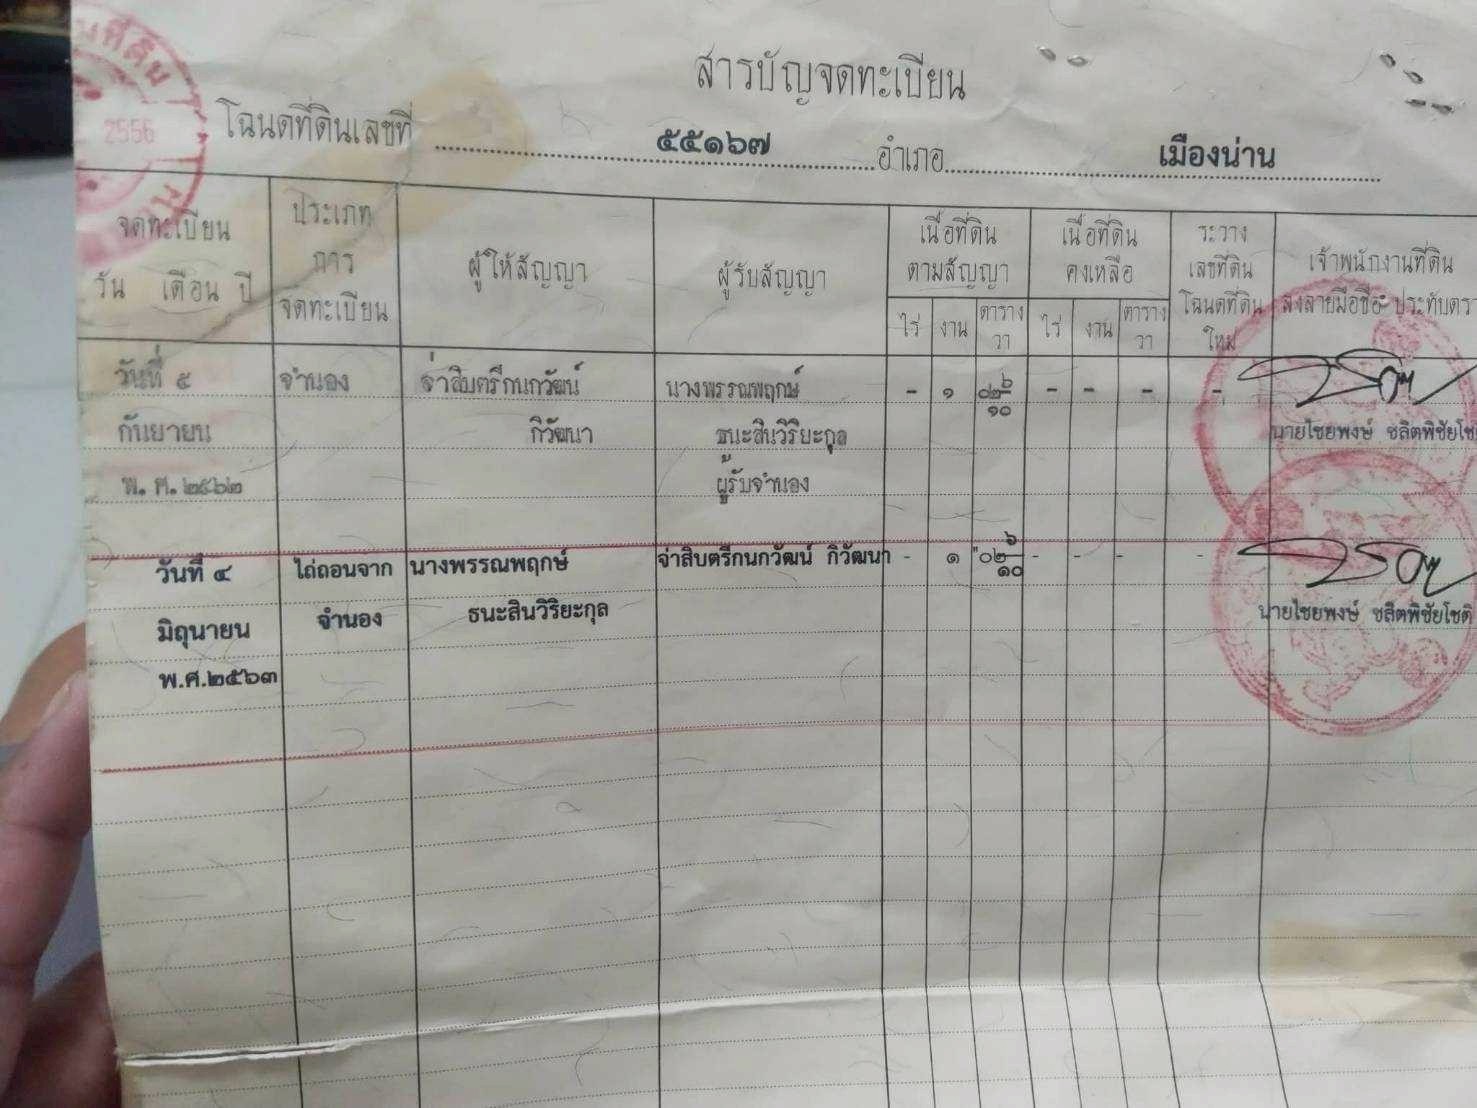 ที่ดิน
2556
สารบัญจดทะเบียน
โฉนดที่ดินเลขที่ ๕๕๑๖๗ อำเภอ เมืองน่าน
จดทะเบียน
วัน เดือน ปี
ประเภท
การ
จดทะเบียน
ผู้ให้สัญญา
ผู้รับสัญญา
เนื้อที่ดิน
ตามสัญญา
ไร่ งาน ตาราง
วา
เนื้อที่ดิน
คงเหลือ
ไร่ งาน ตาราง
วา
ระวาง
เลขที่ดิน
โฉนดที่ดิน
ใหม่
เจ้าพนักงานที่ดิน
ลงลายมือชื่อ ประทับตรา
วันที่ ๕ จำนอง จ่าสิบตรีกนกวัฒน์ นางพรรณพฤกษ์ - ๑ ๐๒ ๖/๑๐ - - - -
กันยายน กิวัฒนา ธนะสินวิริยะกุล นายไชยพงษ์ ชลิตพิชัยโชติ
พ.ศ.๒๕๖๒ ผู้รับจำนอง
วันที่ ๔ ไถ่ถอนจาก นางพรรณพฤกษ์ จ่าสิบตรีกนกวัฒน์ กิวัฒนา - ๑ ๐๒ ๖/๑๐ - - - -
มิถุนายน จำนอง ธนะสินวิริยะกุล นายไชยพงษ์ ชลิตพิชัยโชติ
พ.ศ.๒๕๖๓